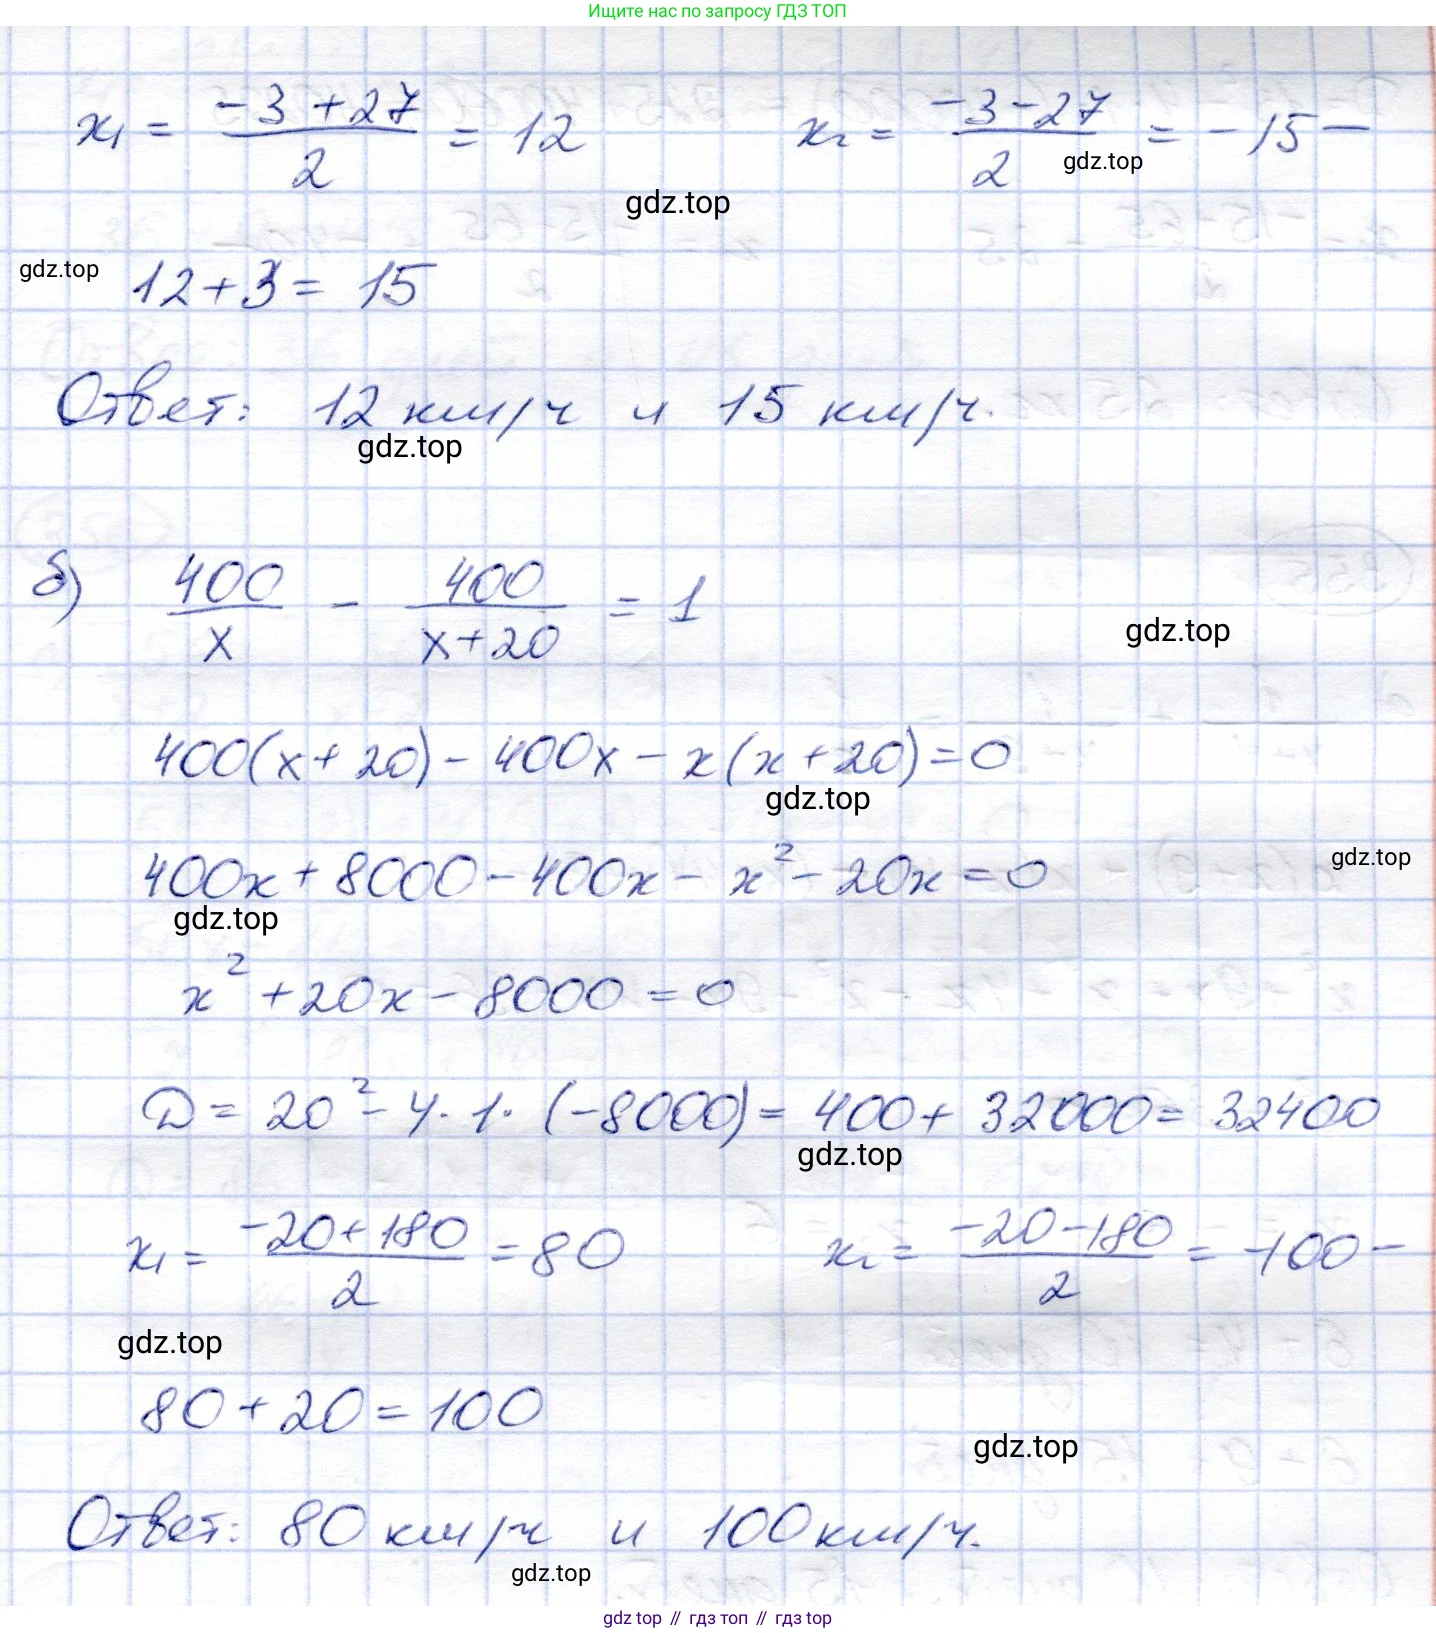 Ищите нас по запросу ГДЗ ТОП
x₁ = (-3+27)/2 = 12    x₂ = (-3-27)/2 = -15 —
gdz.top
gdz.top
gdz.top
12+3 = 15
Ответ: 12 км/ч и 15 км/ч.
gdz.top
б) 400/x - 400/(x+20) = 1
gdz.top
400(x+20) - 400x - x(x+20) = 0
gdz.top
400x + 8000 - 400x - x² - 20x = 0
gdz.top
gdz.top
x² + 20x - 8000 = 0
D = 20² - 4·1·(-8000) = 400 + 32000 = 32400
gdz.top
x₁ = (-20+180)/2 = 80    x₂ = (-20-180)/2 = -100 —
gdz.top
80 + 20 = 100
gdz.top
Ответ: 80 км/ч и 100 км/ч.
gdz.top
gdz top // гдз топ // гдз top